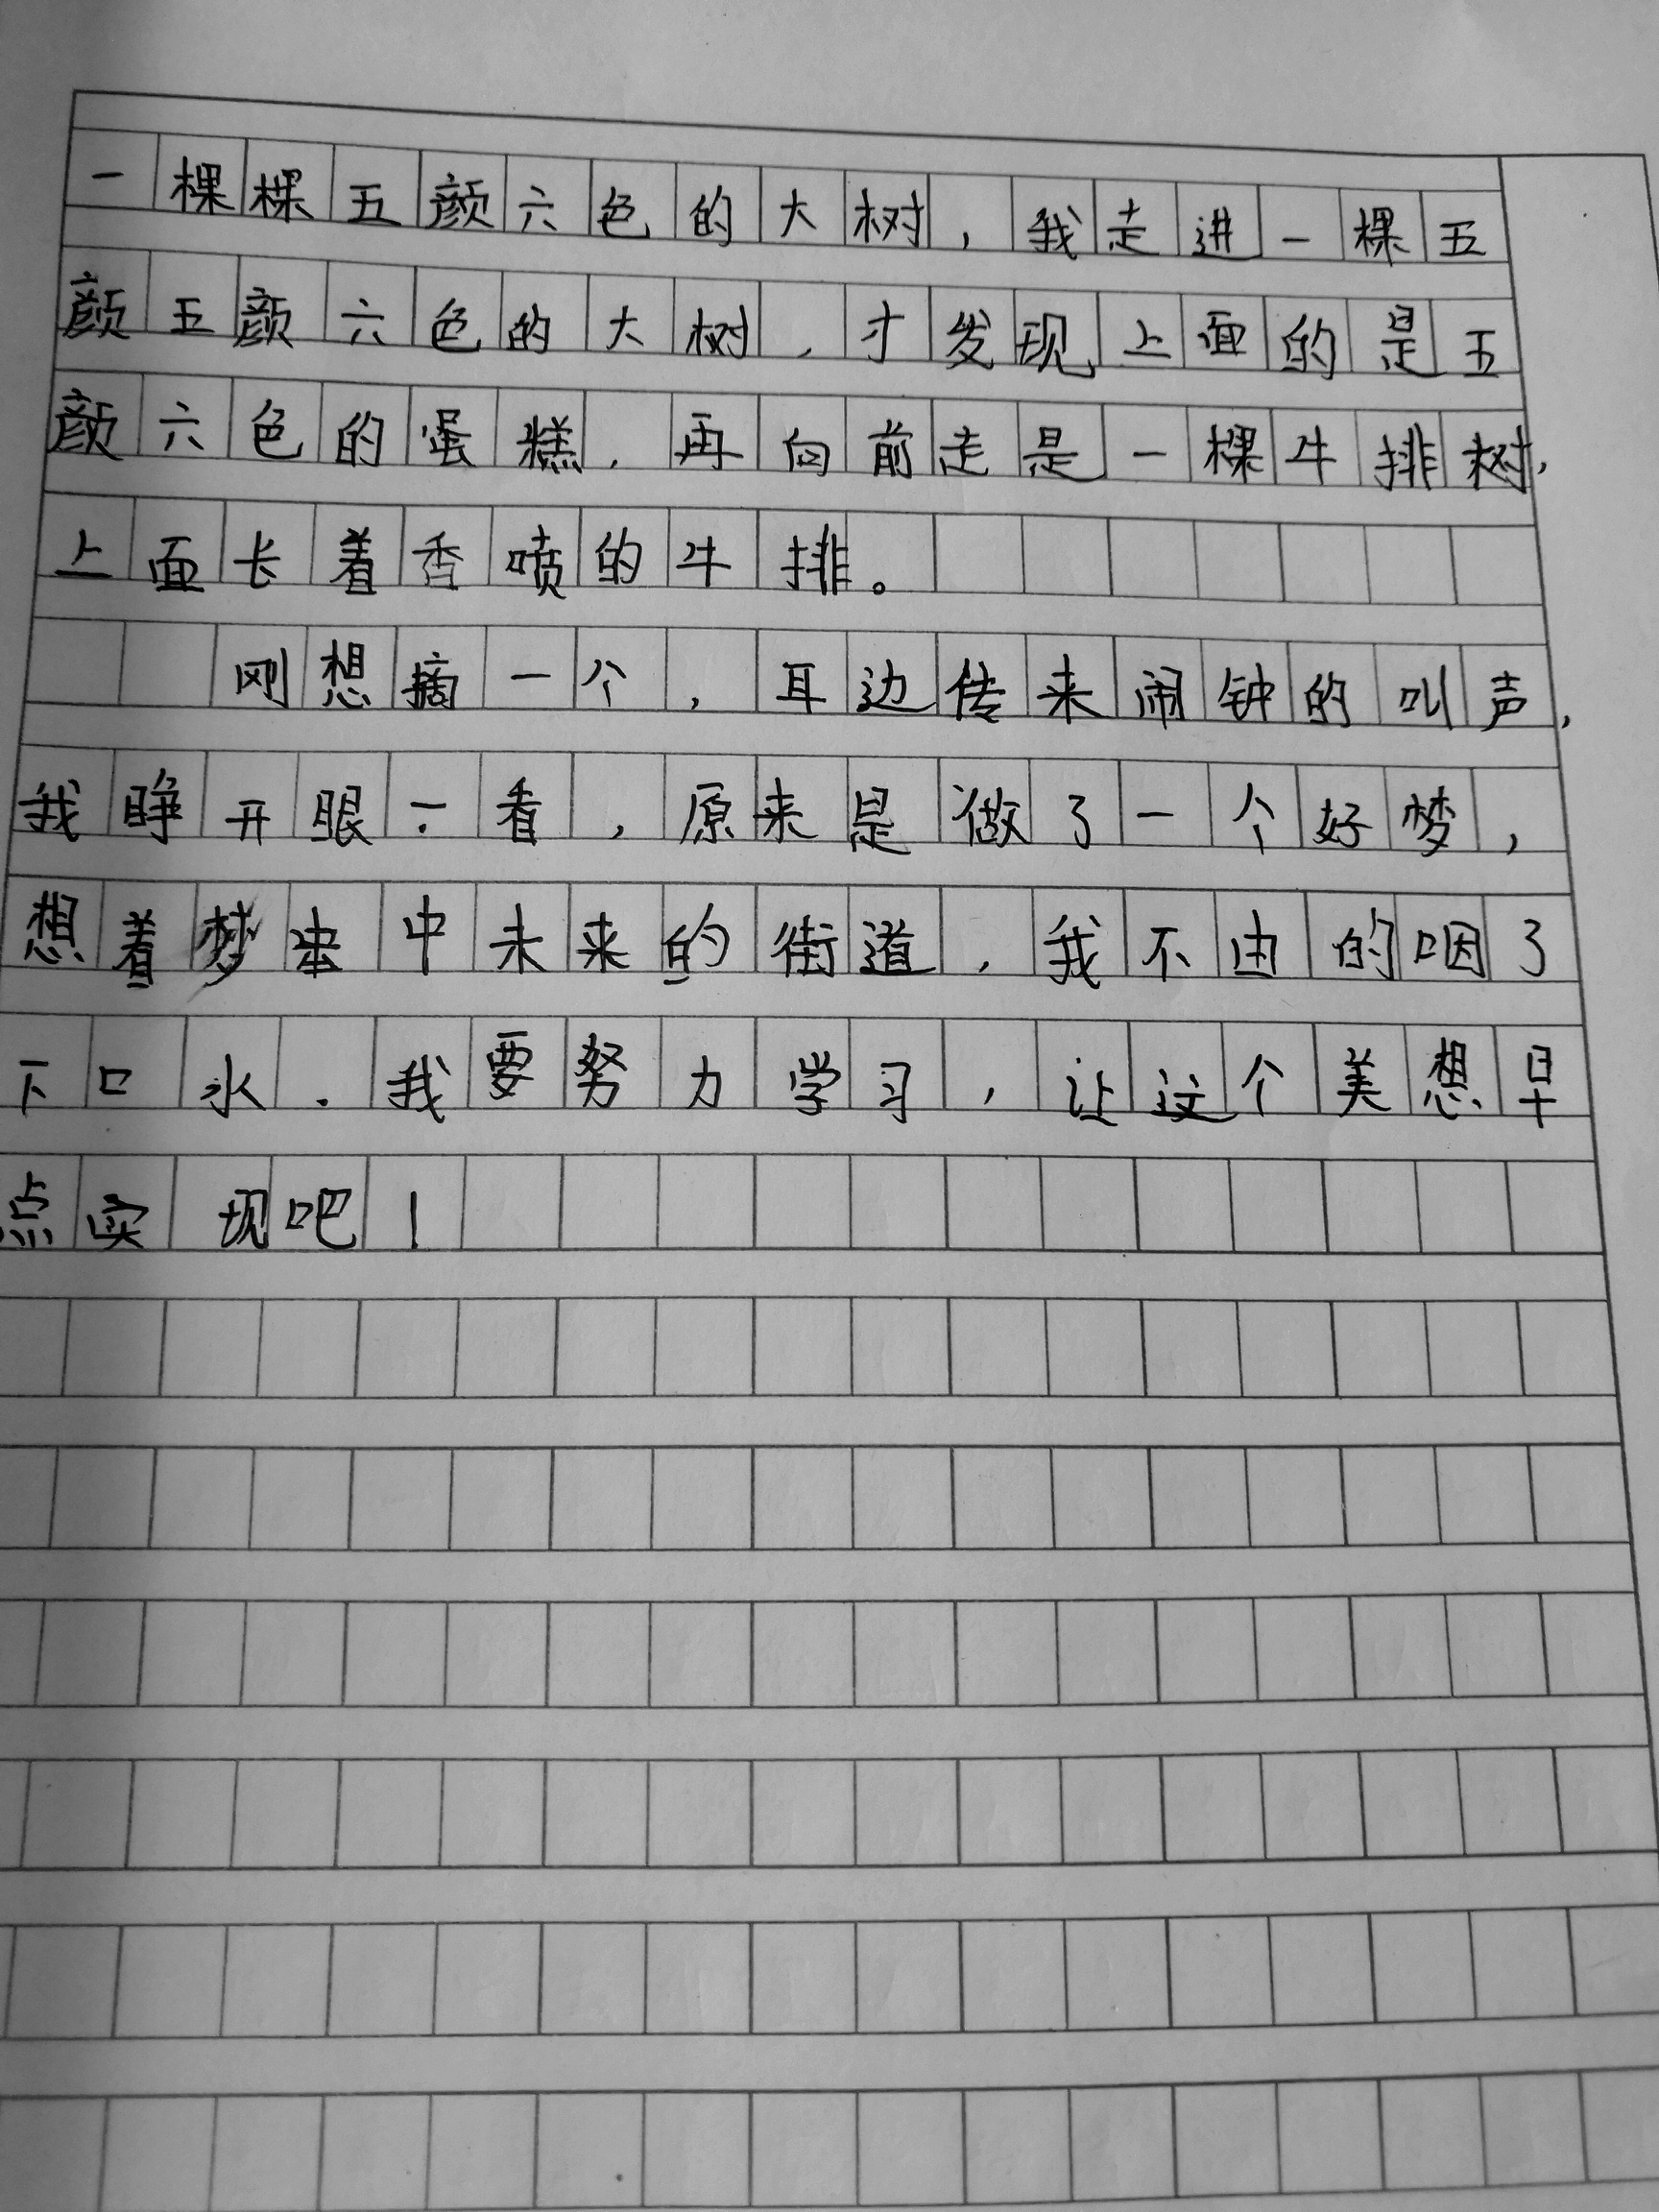 一棵棵五颜六色的大树，我走进一棵五
颜五颜六色的大树，才发现上面的是五
颜六色的蛋糕，再向前走是一棵牛排树，
上面长着香喷的牛排。
刚想摘一个，耳边传来闹钟的叫声，
我睁开眼一看，原来是做了一个好梦，
想着梦中未来的街道，我不由的咽了
下口水．我要努力学习，让这个美想早
点实现吧！